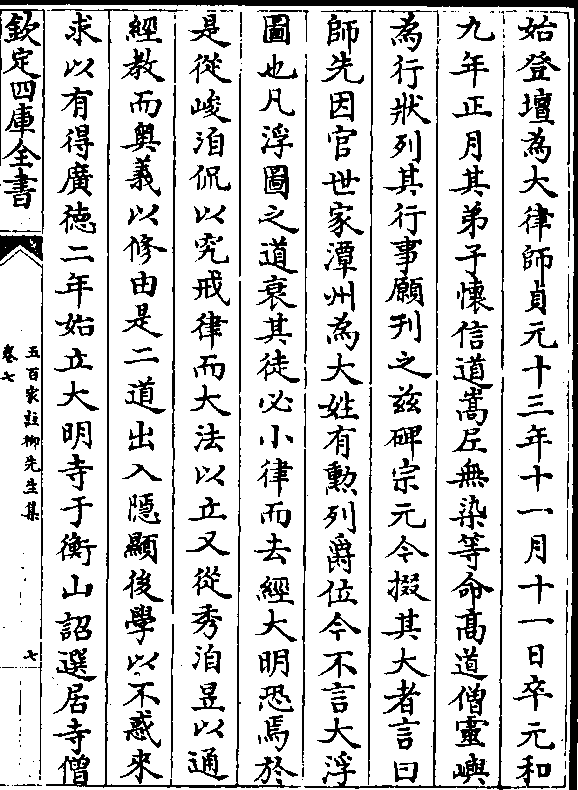 始登壇為大律師貞元十三年十一月十一日卒元和
九年正月其弟子懷信道嵩尼無染等命髙道僧靈嶼
為行狀列其行事願刋之兹碑宗元今掇其大者言曰
師先因官世家潭州為大姓有勲列爵位今不言大浮
圖也凡浮圖之道衰其徒必小律而去經大明恐焉於
是從峻洎侃以究戒律而大法以立又從秀洎昱以通
經教而奥義以修由是二道出入隱顯後學以不惑來
求以有得廣徳二年始立大明寺于衡山詔選居寺僧
欽定四庫全書
五百家註柳先生集
卷七
七